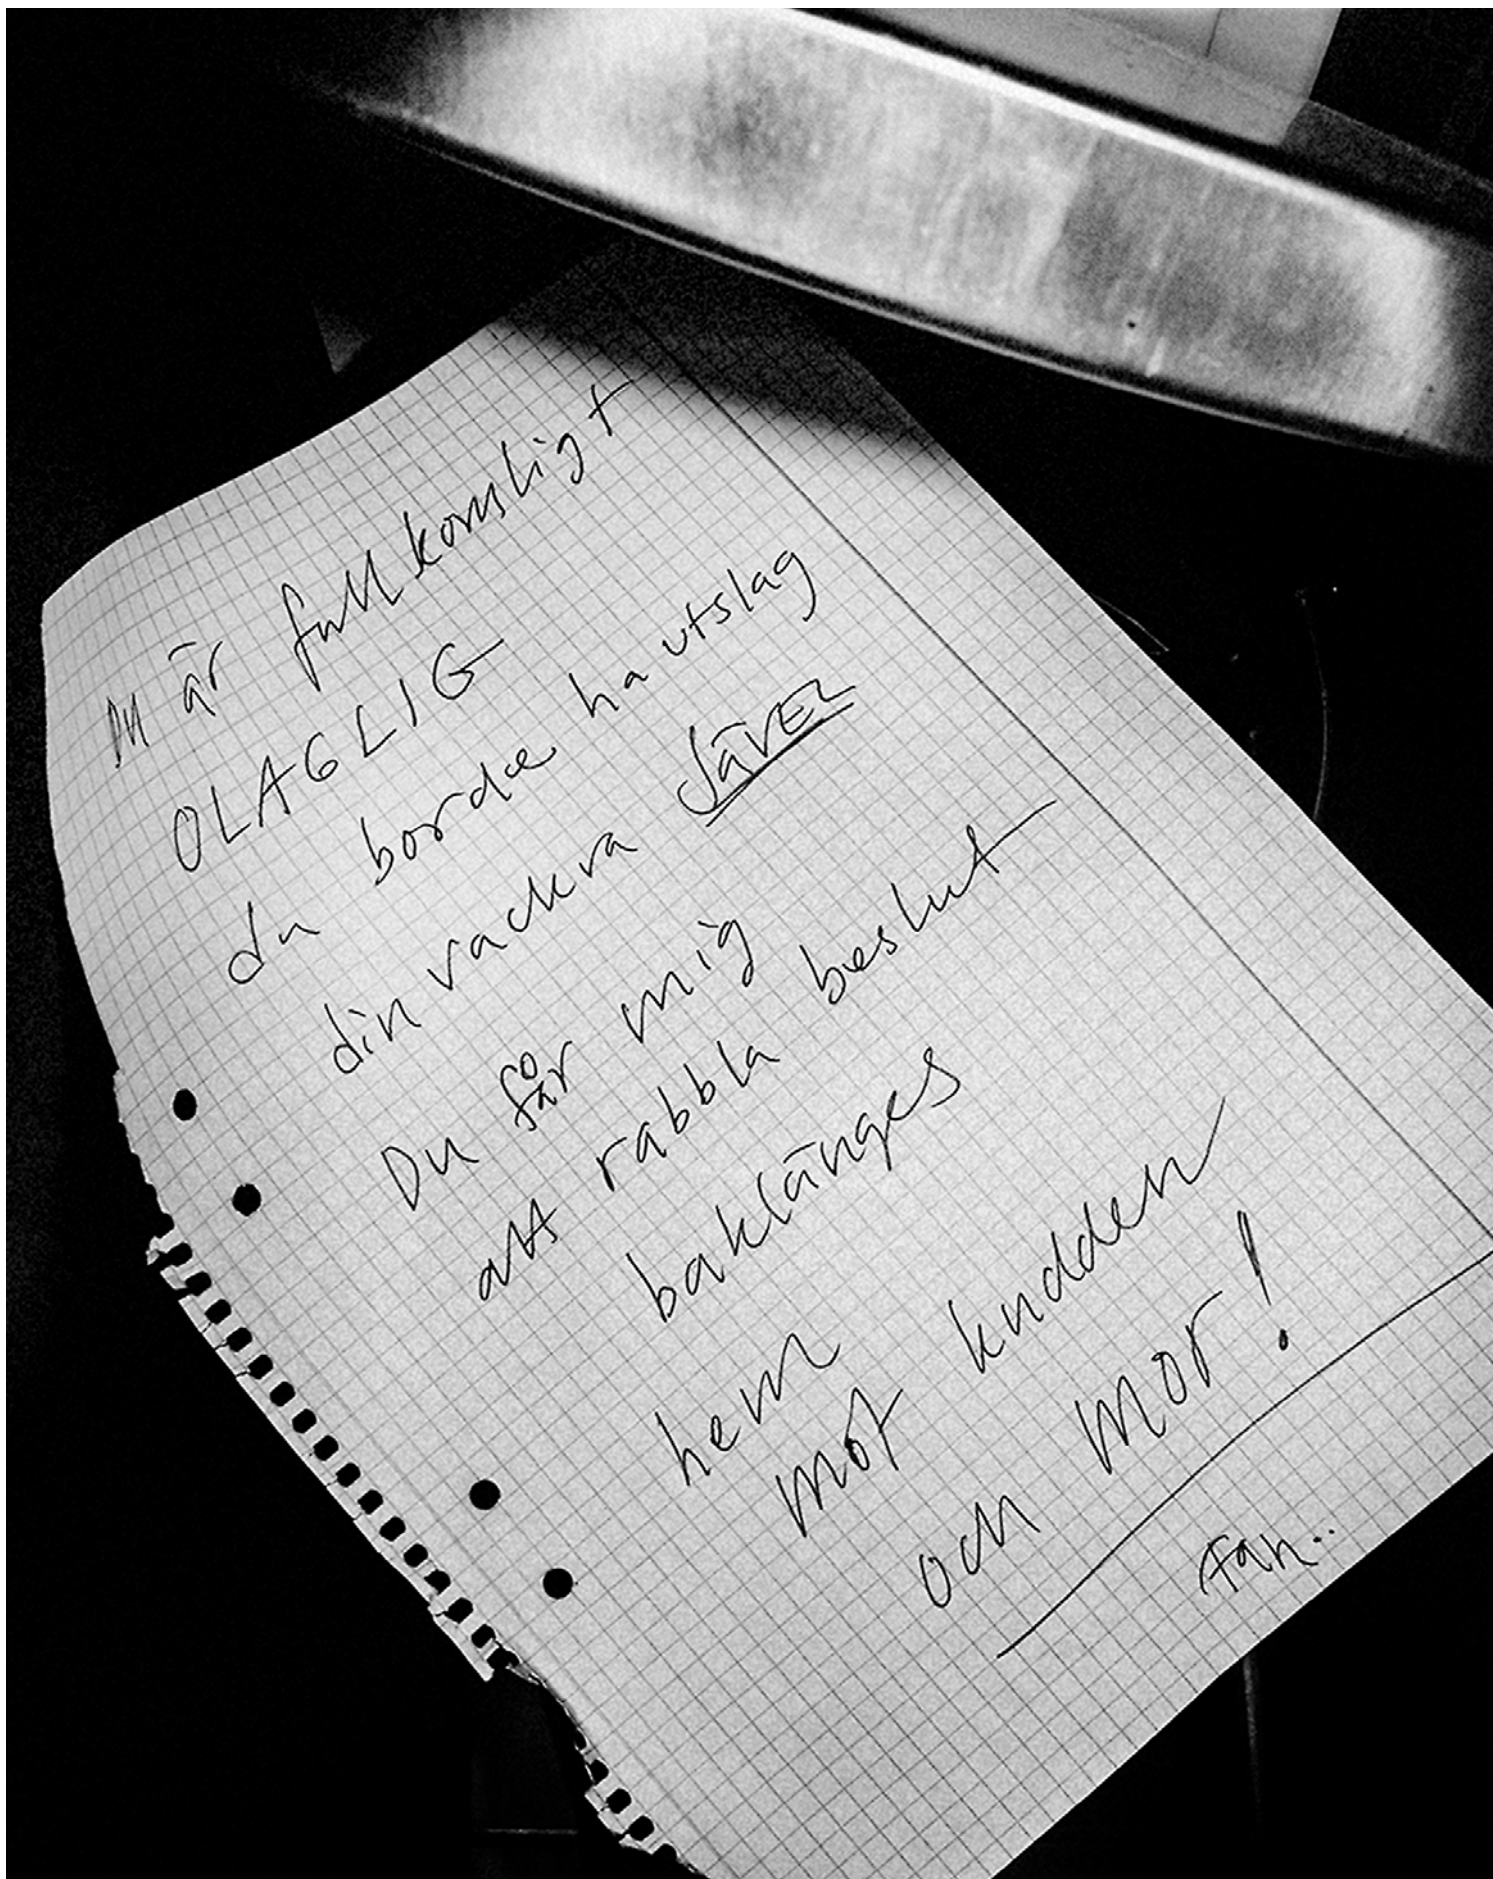 Du är fullkomligt
OLAGLIG
du borde ha utslag
din vackra JÄVEL
Du får mig
att rabbla beslut
baklänges
hem
mot kudden
och mor!
Fan..